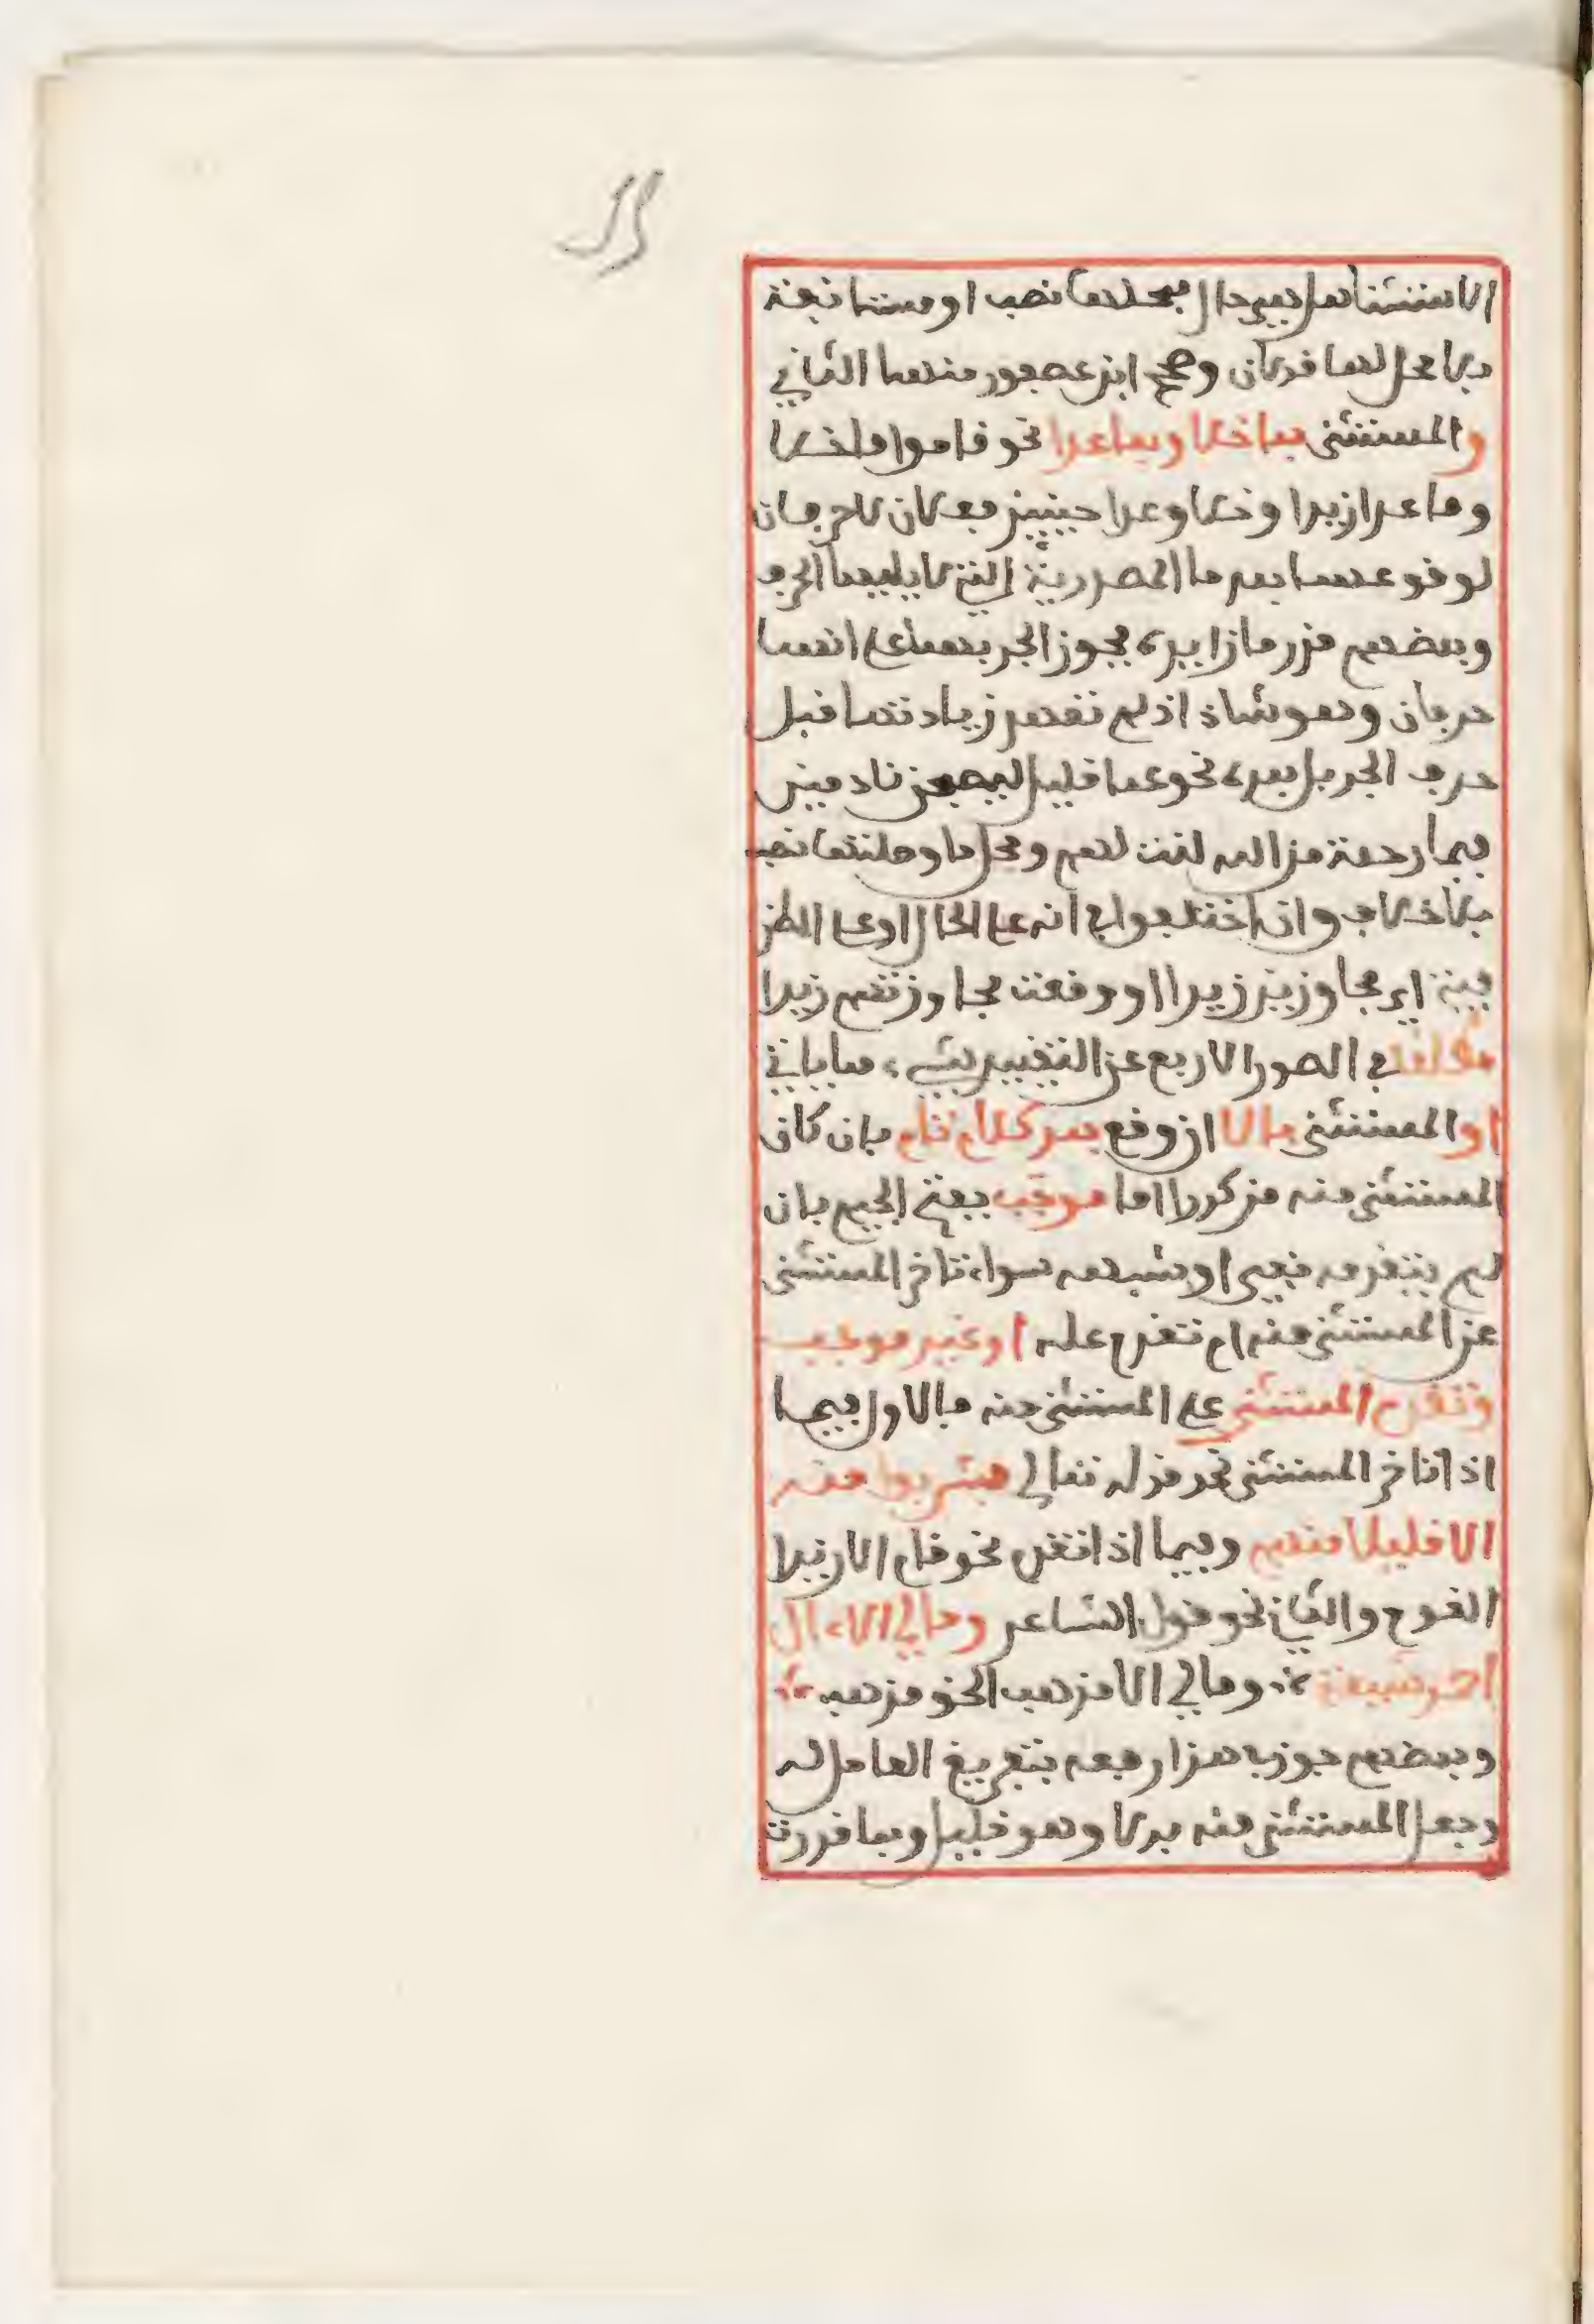 الاستثنا هل هي حال فمحلها نصب او مستانفة
فلا محل لها قولان وصحح ابن عصفور منهما الثاني
والمستثنى بما خلا وبما عدا نحو قاموا ما خلا
وما عدا زيدا وخلا وعدا حينئذ فعلان لا حرفان
لوقوعهما بعد ما المصدرية التي لا يليها الحرف
وبعضهم قدر ما زايدة فجوز الجر بهما على انهما
حرفان وهو شاذ اذ لم تعهد زيادتها قبل
حرف الجر بل بعده نحو عما قليل ليصبحن نادمين
فبما رحمة من الله لنت لهم ومحل ما وصلتها نصب
بلا خلاف وان اختلفوا في انه على الحال او على الظر
فية اي مجاوزين زيدا او وقت مجاوزتهم زيدا
في الصور الاربع عن التقييد بشيء مما ياتي
او المستثنى بالا ان وقع بعد كلام تام بان كان
المستثنى منه مذكورا اما موجب بفتح الجيم بان
لم يتقدمه نفي او شبهه سواء تاخر المستثنى
عن المستثنى منه ام تقدم عليه او غير موجب
وتقدم المستثنى على المستثنى منه فالاول فيما
اذا تاخر المستثنى نحو قوله تعالى فشربوا منه
الا قليلا منهم وفيما اذا تقدم نحو قام الا زيدا
القوم والثاني نحو قول الشاعر ومالي الا ءال
احمد شيعة ومالي الا مذهب الحق مذهب
وبعضهم جوز في هذا رفعه بتفريغ العامل له
وجعل المستثنى منه بدلا وهو قليل وبما قررت